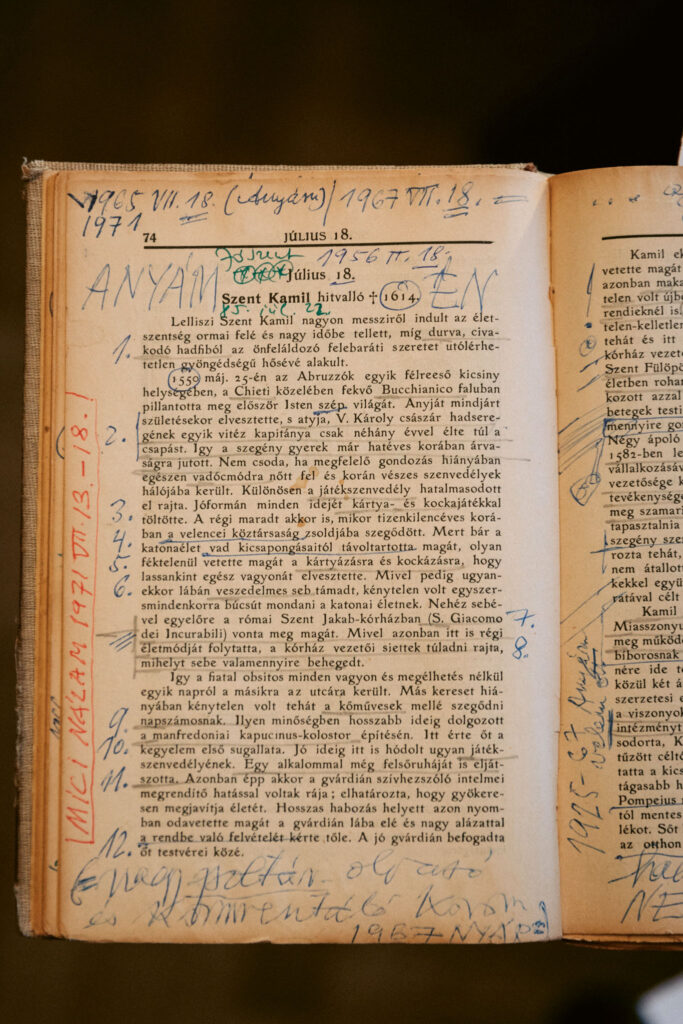 1965 VII. 18. (Anyám) 1967 VII. 18.
1971
74 JÚLIUS 18.
1956 II. 18.
ANYÁM Július 18. ÉN
Szent Kamil hitvalló † 1614.
85. júl. 22.
Lelliszi Szent Kamil nagyon messziről indult az élet-
szentség ormai felé és nagy időbe tellett, míg durva, civa-
1. kodó hadfiból az önfeláldozó felebaráti szeretet utólérhe-
tetlen gyöngédségű hősévé alakult.
1550 máj. 25-én az Abruzzók egyik félreeső kicsiny
helységében, a Chieti közelében fekvő Bucchianico faluban
pillantotta meg először Isten szép világát. Anyját mindjárt
születésekor elvesztette, s atyja, V. Károly császár hadsere-
2. gének egyik vitéz kapitánya csak néhány évvel élte túl a
csapást. Így a szegény gyerek már hatéves korában árva-
ságra jutott. Nem csoda, ha megfelelő gondozás hiányában
egészen vadócmódra nőtt fel és korán vészes szenvedélyek
hálójába került. Különösen a játékszenvedély hatalmasodott
el rajta. Jóformán minden idejét kártya- és kockajátékkal
3. töltötte. A régi maradt akkor is, mikor tizenkilencéves korá-
ban a velencei köztársaság zsoldjába szegődött. Mert bár a
4. katonaélet vad kicsapongásaitól távoltartotta magát, olyan
5. féktelenül vetette magát a kártyázásra és kockázásra, hogy
lassankint egész vagyonát elvesztette. Mivel pedig ugyan-
6. ekkor lábán veszedelmes seb támadt, kénytelen volt egyszer-
smindenkorra búcsút mondani a katonai életnek. Nehéz sebé-
vel egyelőre a római Szent Jakab-kórházban (S. Giacomo 7.
dei Incurabili) vonta meg magát. Mivel azonban itt is régi
életmódját folytatta, a kórház vezetői siettek túladni rajta, 8.
mihelyt sebe valamennyire behegedt.
Így a fiatal obsitos minden vagyon és megélhetés nélkül
egyik napról a másikra az utcára került. Más kereset hiá-
nyában kénytelen volt tehát a kőművesek mellé szegődni
9. napszámosnak. Ilyen minőségben hosszabb ideig dolgozott
a manfredoniai kapucinus-kolostor építésén. Itt érte őt a
10. kegyelem első sugallata. Jó ideig itt is hódolt ugyan játék-
szenvedélyének. Egy alkalommal még felsőruháját is elját-
11. szotta. Azonban épp akkor a gvárdián szívhezszóló intelmei
megrendítő hatással voltak rája; elhatározta, hogy gyökere-
sen megjavítja életét. Hosszas habozás helyett azon nyom-
ban odavetette magát a gvárdián lába elé és nagy alázattal
12. a rendbe való felvételét kérte tőle. A jó gvárdián befogadta
őt testvérei közé.
1967 NYÁR
MICI NÁLAM 1971 VII. 13.-18.!
Kamil
vetette magát
azonban
telen volt
rendieknél is
telen-kelletlen
tehát és itt
kórház
Szent
életben
kozott azzal
betegek
mennyire
Négy ápoló
1582-ben
vállalkozásá
vezetősége
tevékenység
meg
tapasztalnia
szegény
rozta tehát,
nem átallott
kekkel
rátával célt
Kamil
Miasszonyu
meg
bíborosnak
nére ide
közül két
szerzetesi
a viszonyok
intézményt
sodorta, K
tűzött
tatta a
tágasabb h
Pompeius
tól mentes
lékot. Sőt
az otthon
1925-67 Anyám
velem